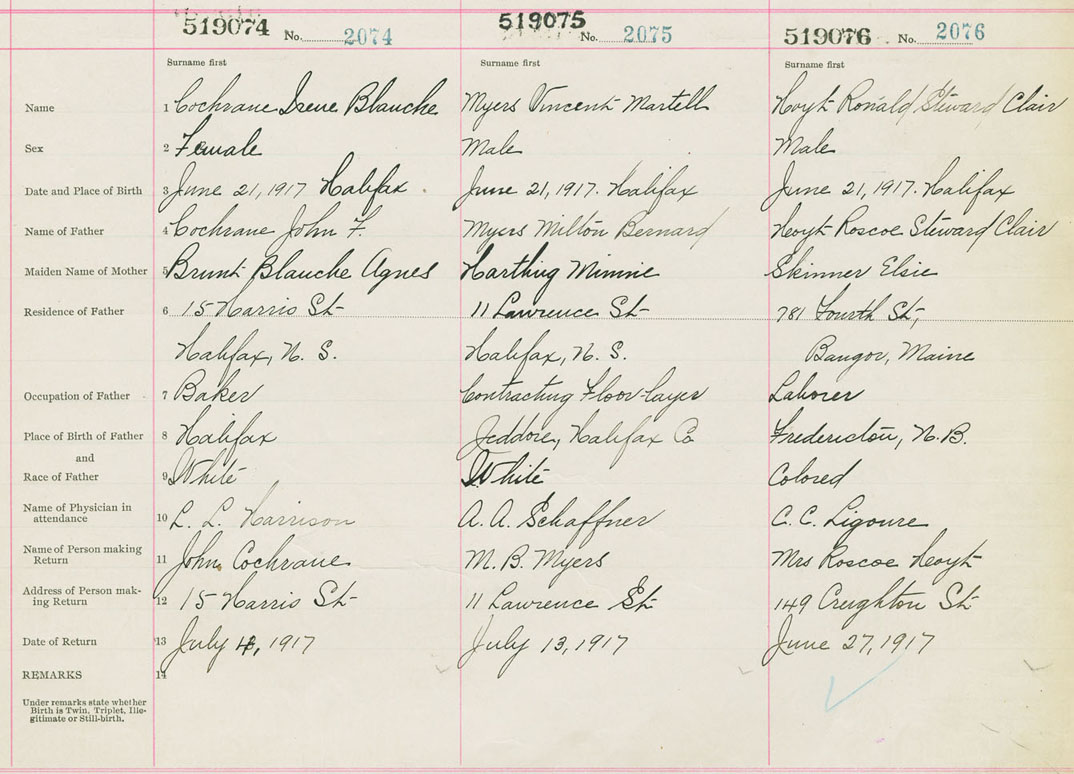 519074 No. 2074 519075 No. 2075 519076 No. 2076
Surname first Surname first Surname first
Name 1 Cochrane Irene Blanche Myers Vincent Martell Hoyt Ronald Steward Clair
Sex 2 Female Male Male
Date and Place of Birth 3 June 21, 1917 Halifax June 21, 1917. Halifax June 21, 1917. Halifax
Name of Father 4 Cochrane John F. Myers Milton Bernard Hoyt Roscoe Steward Clair
Maiden Name of Mother 5 Brunt Blanche Agnes Harthing Minnie Skinner Elsie
Residence of Father 6 15 Harris St 11 Lawrence St 781 Fourth St,
Halifax, N. S. Halifax, N. S. Bangor, Maine
Occupation of Father 7 Baker Contracting Floor-layer Laborer
Place of Birth of Father 8 Halifax Jeddore, Halifax Co Fredericton, N.B.
and
Race of Father 9 White White Colored
Name of Physician in
attendance 10 L. L. Harrison A. A. Schaffner C. C. Ligoure
Name of Person making
Return 11 John Cochrane M. B. Myers Mrs Roscoe Hoyt
Address of Person mak-
ing Return 12 15 Harris St 11 Lawrence St 149 Creighton St
Date of Return 13 July 4, 1917 July 13, 1917 June 27, 1917
REMARKS 14
Under remarks state whether
Birth is Twin, Triplet, Ille-
gitimate or Still-birth.